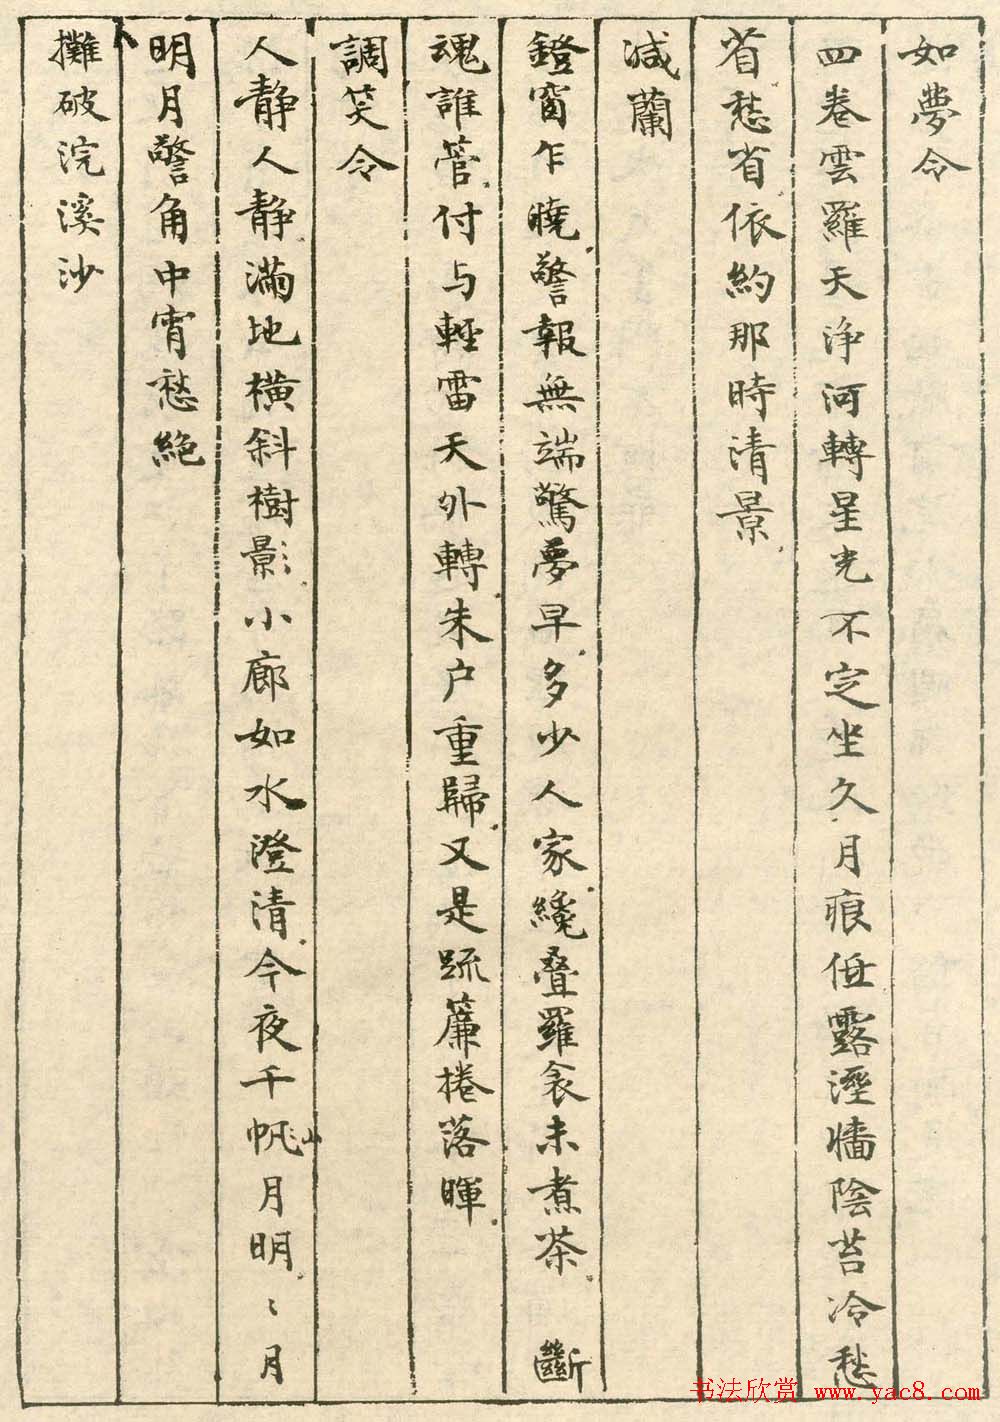 如夢令
四卷雲羅天淨河轉星光不定坐久月痕低露溼牆陰苔冷愁
省愁省依約那時清景
減蘭
鐙窗乍曉警報無端驚夢早多少人家纔疊羅衾未煮茶 斷
魂誰管付与輕雷天外轉朱户重歸又是疏簾捲落暉
調笑令
人静人静滿地橫斜樹影小廊如水澄清今夜千帆山月明〻月
明月警角中宵愁絕
攤破浣溪沙
书法欣赏 www.yac8.com